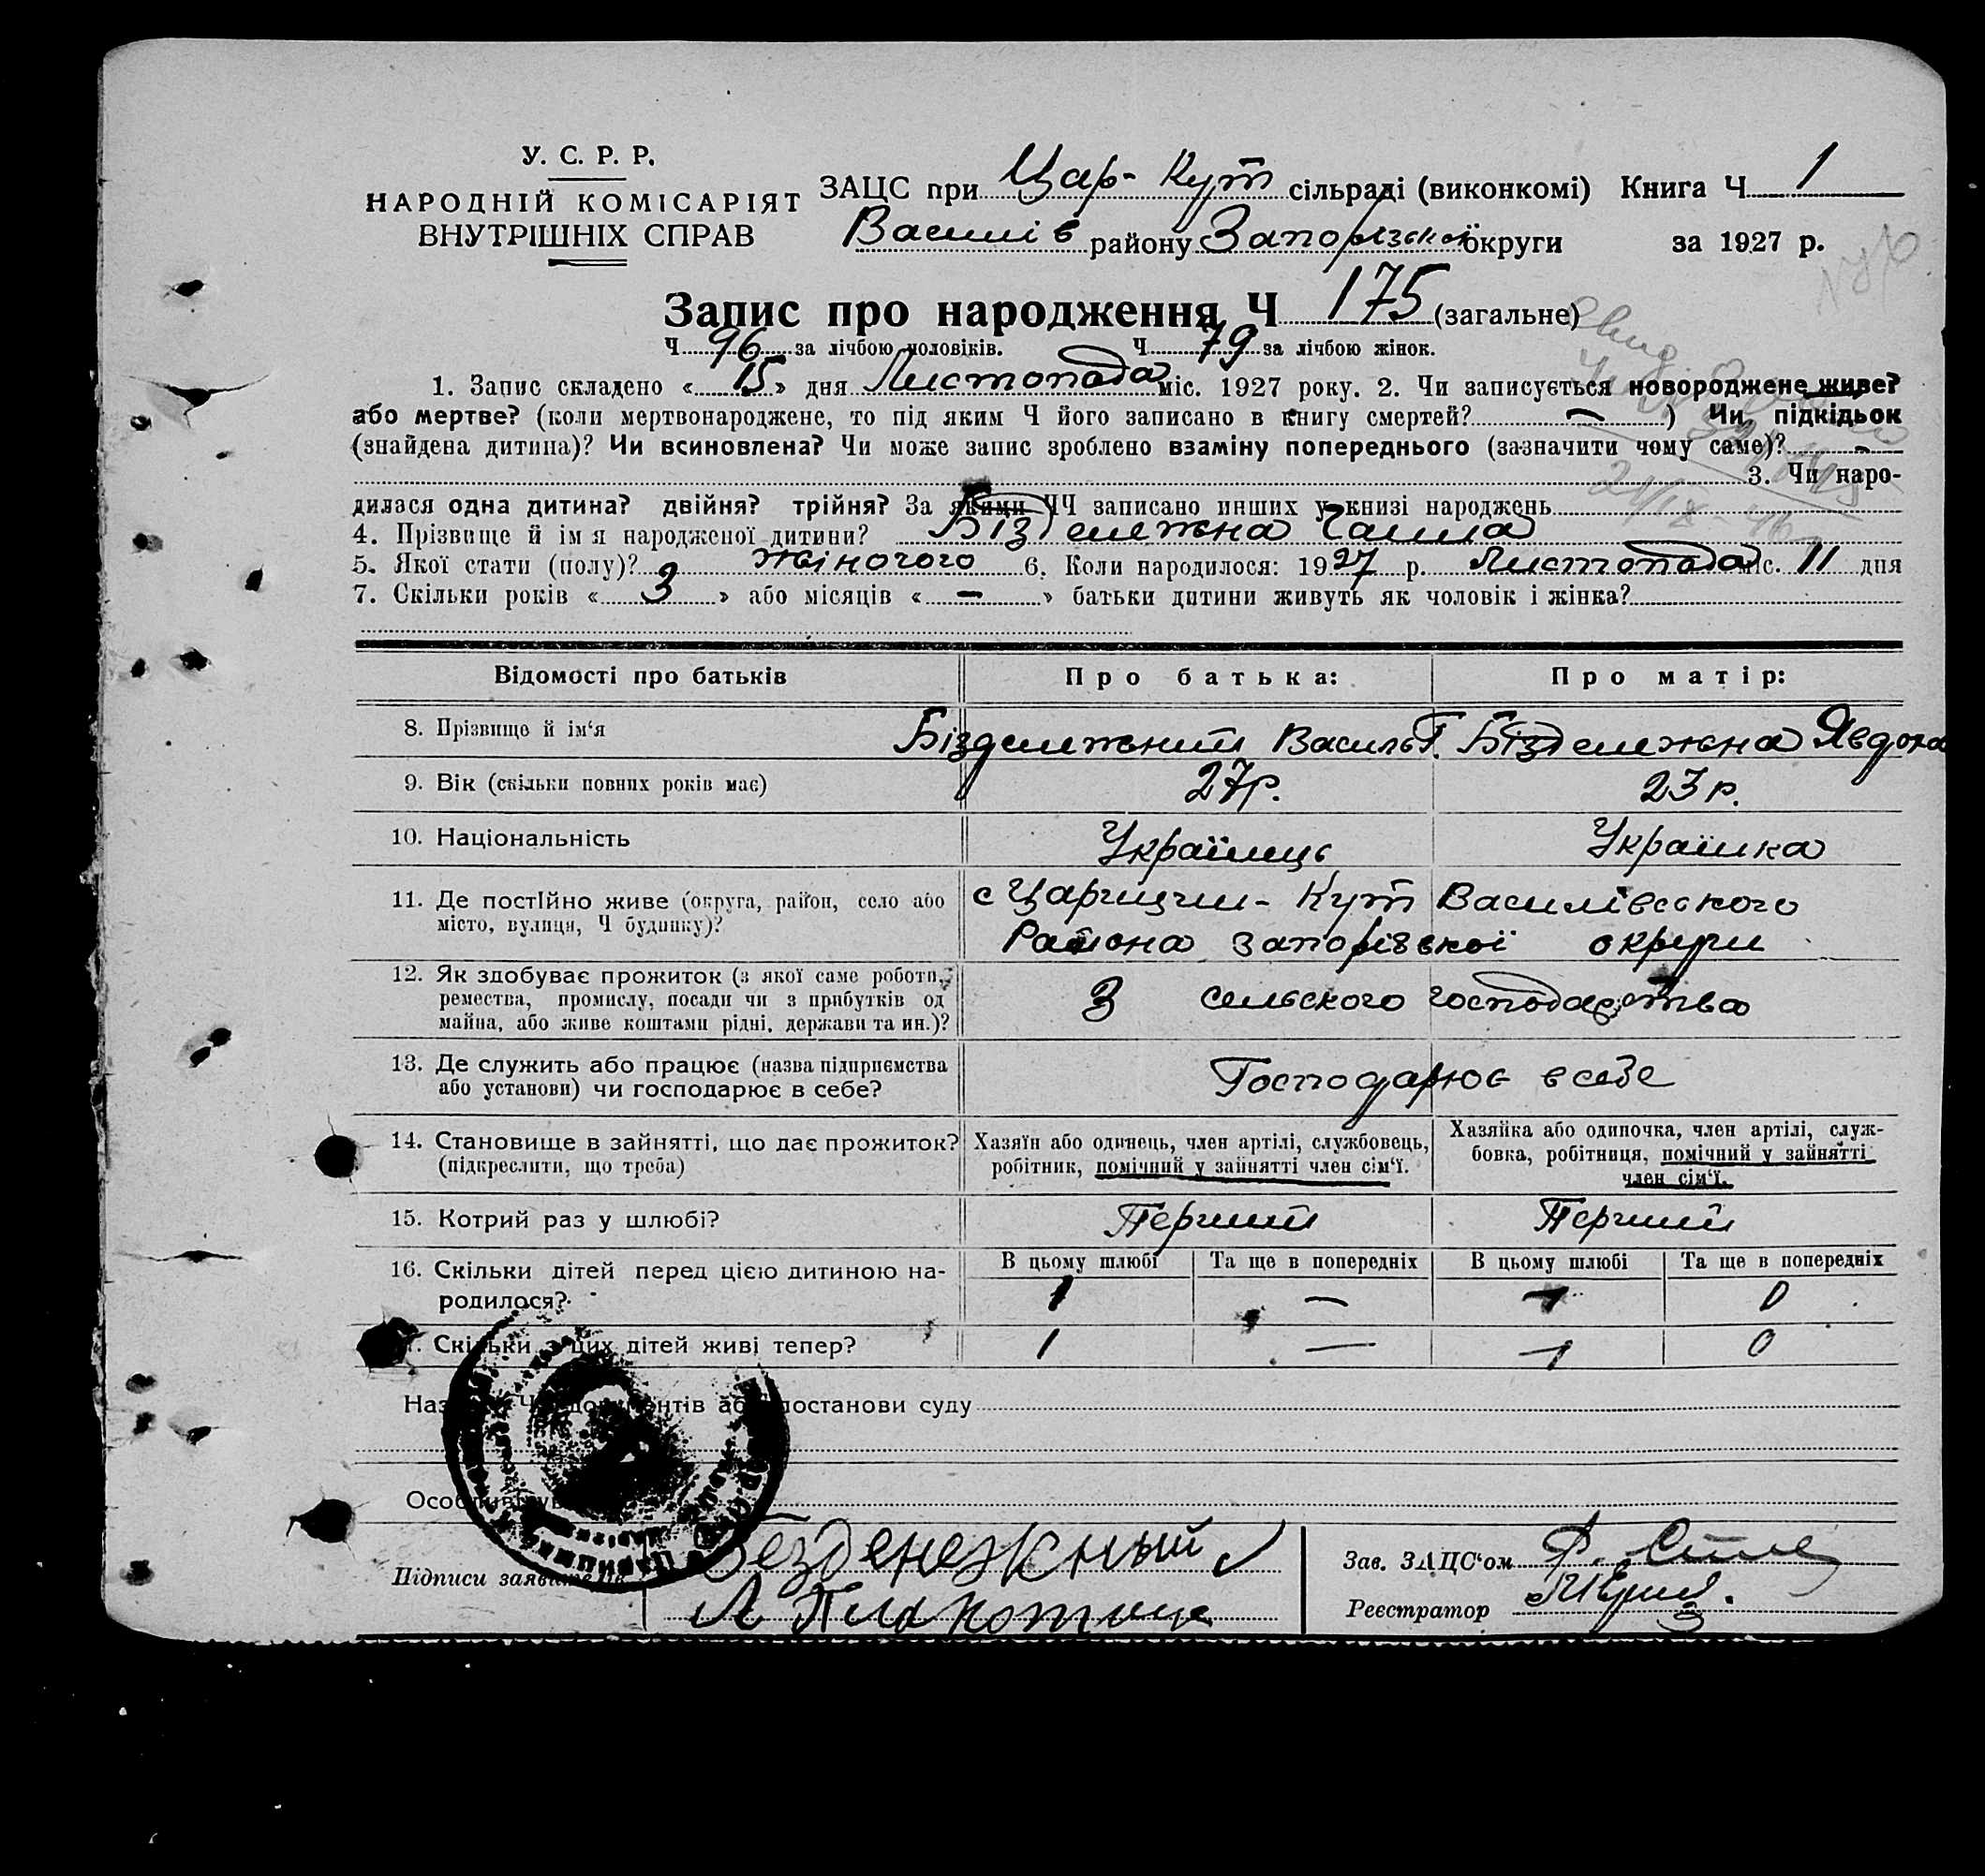 У. С. Р. Р.
НАРОДНІЙ КОМІСАРІЯТ
ВНУТРІШНІХ СПРАВ
ЗАЦС при Цар-Кут сільраді (виконкомі) Книга Ч 1
Василів району Запорізької округи за 1927 р.
Запис про народження Ч 175 (загальне)
Ч 96 за лічбою чоловіків. Ч 79 за лічбою жінок.
1. Запис складено « 15 » дня Листопада міс. 1927 року. 2. Чи записується новороджене живе?
або мертве? (коли мертвонароджене, то під яким Ч його записано в книгу смертей? — ) Чи підкідьок
(знайдена дитина)? Чи всиновлена? Чи може запис зроблено взаміну попереднього (зазначити чому саме)? -
3. Чи наро-
дилася одна дитина? двійня? трійня? За якими ЧЧ записано инших у книзі народжень
4. Прізвище й ім'я народженої дитини? Бізденежна Галина
5. Якої стати (полу)? жіночого 6. Коли народилося: 1927 р. Листопада міс. 11 дня
7. Скільки років « 3 » або місяців « — » батьки дитини живуть як чоловік і жінка?
Відомості про батьків Про батька: Про матір:
8. Прізвище й ім'я Бізденежний Василь Г. Бізденежна Явдоха
9. Вік (скільки повних років має) 27р. 23р.
10. Національність Українець Українка
11. Де постійно живе (округа, район, село або с Царицин-Кут Василівського
місто, вулиця, Ч будинку)? Района Запорізської округи
12. Як здобуває прожиток (з якої саме роботи,
ремества, промислу, посади чи з прибутків од З сельского господарства
майна, або живе коштами рідні, держави та ин.)?
13. Де служить або працює (назва підприємства Господарює в себе
або установи) чи господарює в себе?
14. Становище в зайнятті, що дає прожиток? Хазяїн або одинець, член артілі, службовець, Хазяйка або одиночка, член артілі, служ-
(підкреслити, що треба) робітник, помічний у зайнятті член сім'ї. бовка, робітниця, помічний у зайнятті
член сім'ї.
15. Котрий раз у шлюбі? Перший Перший
16. Скільки дітей перед цією дитиною на- В цьому шлюбі Та ще в попередніх В цьому шлюбі Та ще в попередніх
родилося? 1 — 1 0
Скільки з цих дітей живі тепер? 1 — 1 0
документів або постанови суду
Підписи Безденежный Зав. ЗАЦС'ом Ф.
Л Реєстратор